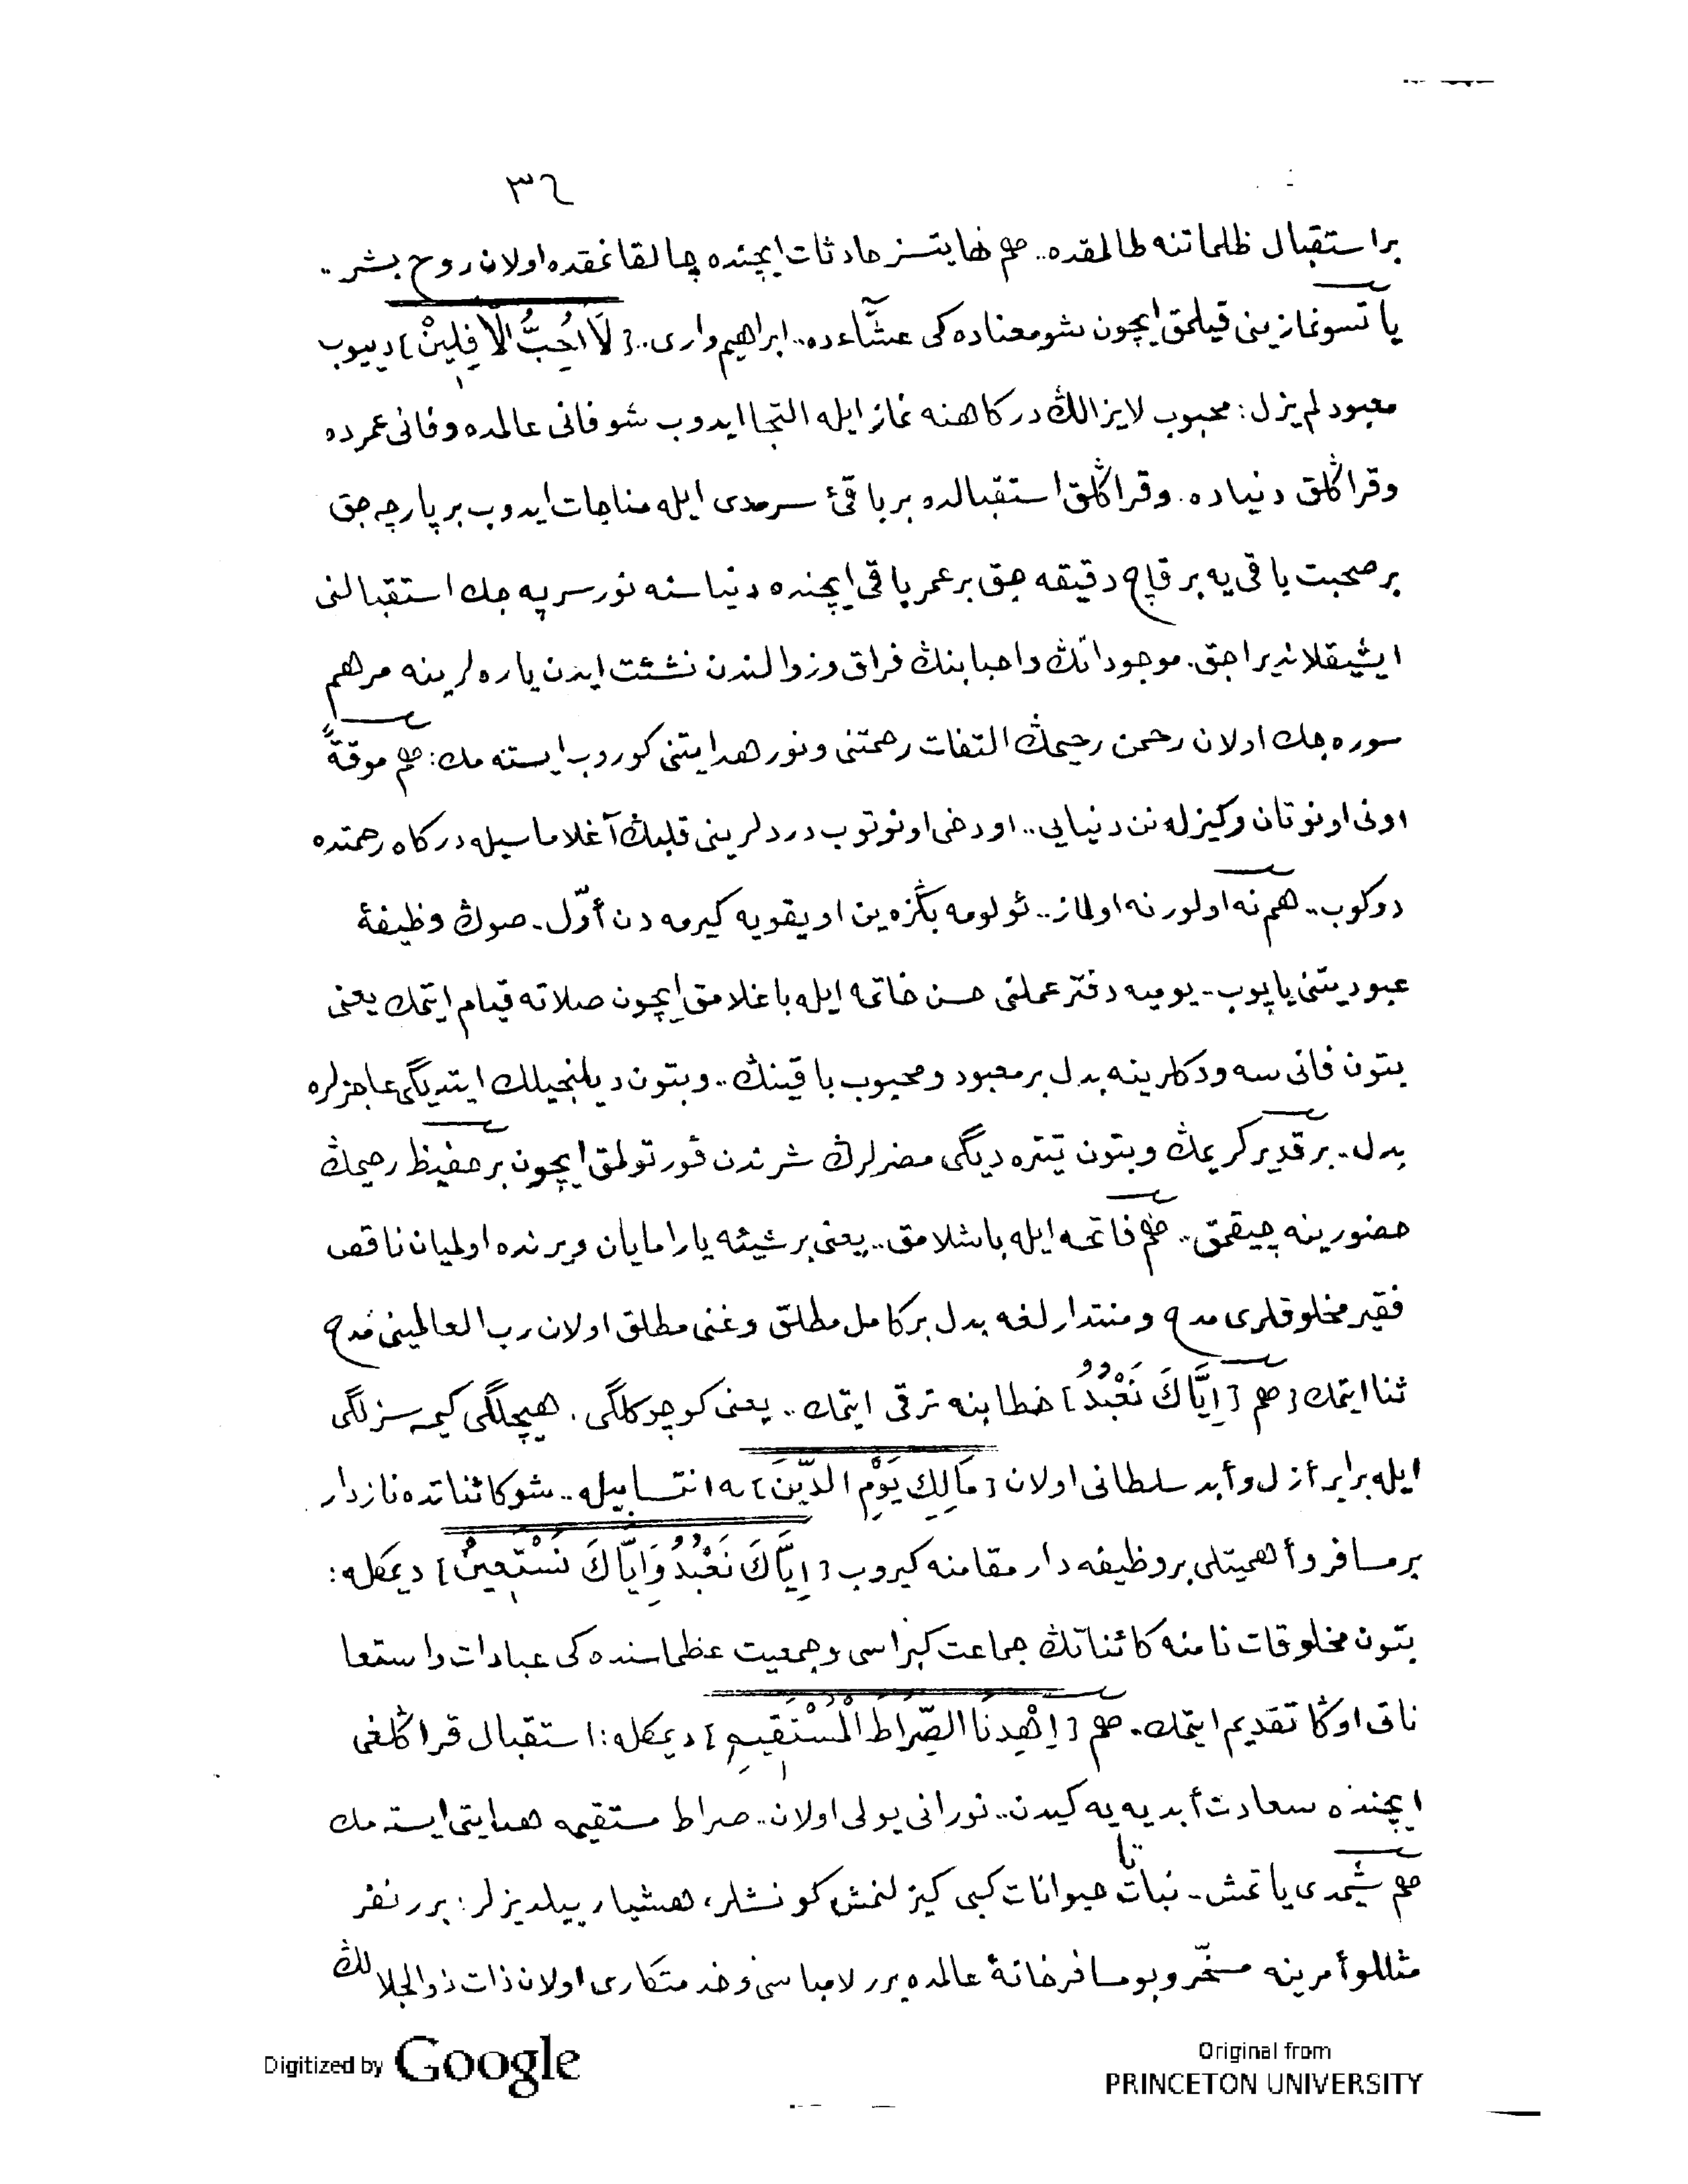 ٣٦
براستقبال ظلماتنه طالمقده.. هم نهايتسز حادثات ايچنده چالقانمقده اولان روح بشر..
ياتسونمازينى قيلمق ايچون شومعناده كى عشآءده.. ابراهيم وارى.. [لَا اُحِبُّ الْاٰفِلِينْ] دييوب
معبود لم يزل: محبوب لايزالڭ دركاهنه نماز ايله التجا ايدوب شو فانى عالمده وفانى عمرده
وقراڭلق دنياده. وقراڭلق استقبالده بر باقئ سرمدى ايله مناجات ايدوب بر پارچه جق
بر صحبت باقى يه بر قاچ دقيقه جق بر عمر باقى ايچنده دنياسنه نور سرپه جك استقبالنى
ايشيقلانديراجق. موجوداتڭ واحبابنڭ فراق وزوالندن نشئت ايدن ياره لرينه مرهم
سوره جك اولان رحمن رحيمڭ التفات رحمتنى ونور هدايتنى كوروب ايسته مك: هم موقةً
اونى اونوتان وكيزله نن دنيايى.. اودخى اونوتوب دردلرينى قلبڭ آغلاماسيله دركاه رحمتده
دوكوب.. هم نه اولور نه اولماز.. ئولومه بڭزه ين اويقويه كيرمه دن أوّل. صوڭ وظيفۀ
عبوديتنى ياپوب.. يوميه دفتر عملنى حسن خاتمه ايله باغلامق ايچون صلاته قيام ايتمك يعنى
بتون فانى سه ودكلرينه بدل بر معبود ومحبوب باقينڭ.. وبتون ديلنجيلك ايتديگى عاجزلره
بدل. بر قدير كريمڭ وبتون تيتره ديگى مضرلرڭ شرندن قورتولمق ايچون بر حفيظ رحيمڭ
حضورينه چيقمق.. هم فاتحه ايله باشلامق.. يعنى بر شيئه يارامايان ويرنده اولميان ناقص
فقير مخلوقلرى مدح ومنتدارلغه بدل بر كامل مطلق وغنى مطلق اولان رب العالمينى مدح
ثنا ايتمك [هم [اِيَّاكَ نَعْبُدُ] خطابنه ترقى ايتمك.. يعنى كوچوكلگى. هيچلگى كيمسه سزلگى
ايله برابر أزل وأبد سلطانى اولان [مَالِكِ يَوْمِ الدِّينَ] ه انتسابيله.. شو كائناتده نازدار
بر مسافر وأهميتلى بر وظيفه دار مقامنه كيروب [اِيَّاكَ نَعْبُدُ وَاِيَّاكَ نَسْتَعِينُ] ديمكله:
بتون مخلوقات نامنه كائناتڭ جماعت كبراسى وجمعيت عظماسنده كى عبادات واستعا
ناتى اوڭا تقديم ايتمك. هم [اِهْدِنَا الصِّرَاطَ الْمُسْتَقِيمِ] ديمكله: استقبال قراڭلغى
ايچنده سعادت أبديه يه كيدن.. نورانى يولى اولان.. صراط مستقيمه هدايتى ايسته مك
هم شيمدى ياتمش. نباتا ت حيوانات كبى كيزلنمش كونشلر، هشيار ييلديزلر: برر نفر
مثللو أمرينه مسخّر وبو مسافرخانۀ عالمده برر لامباسى وخدمتكارى اولان ذات ذوالجلالڭ
Digitized by Google
Original from
PRINCETON UNIVERSITY